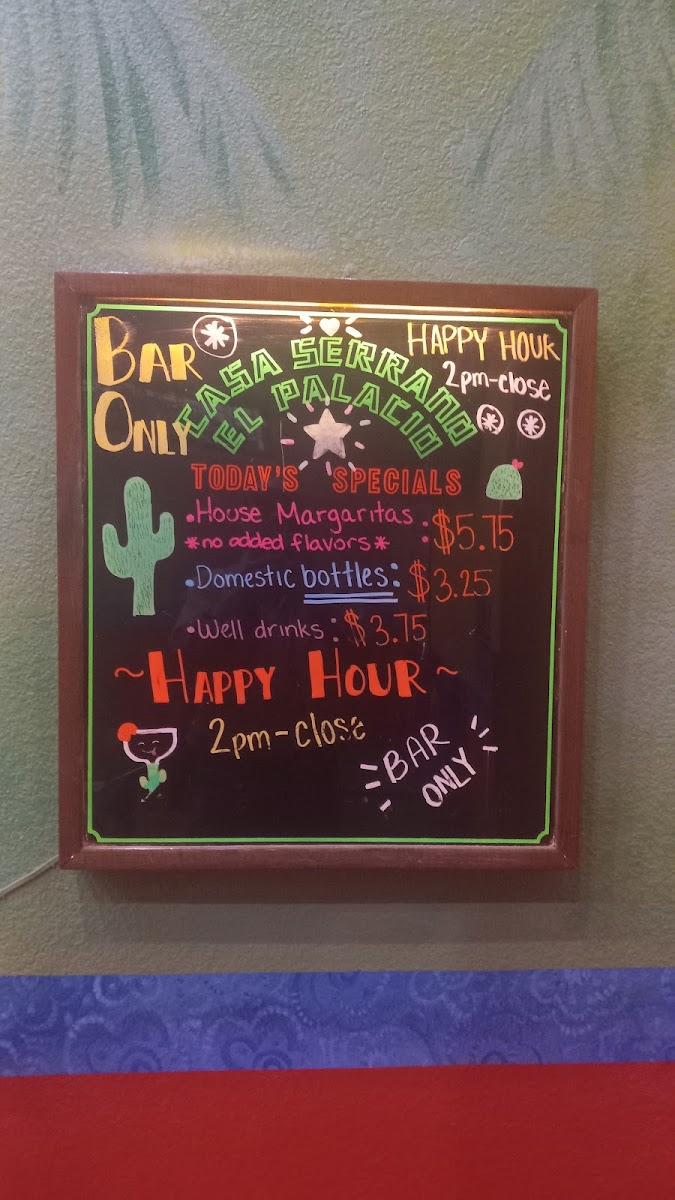 BAR
ONLY
CASA SERRANO
EL PALACIO
HAPPY HOUR
2pm-close
TODAY'S SPECIALS
•House Margaritas : $5.75
*no added flavors*
•Domestic bottles: $3.25
•Well drinks: $3.75
~HAPPY HOUR~
2pm-close
BAR
ONLY